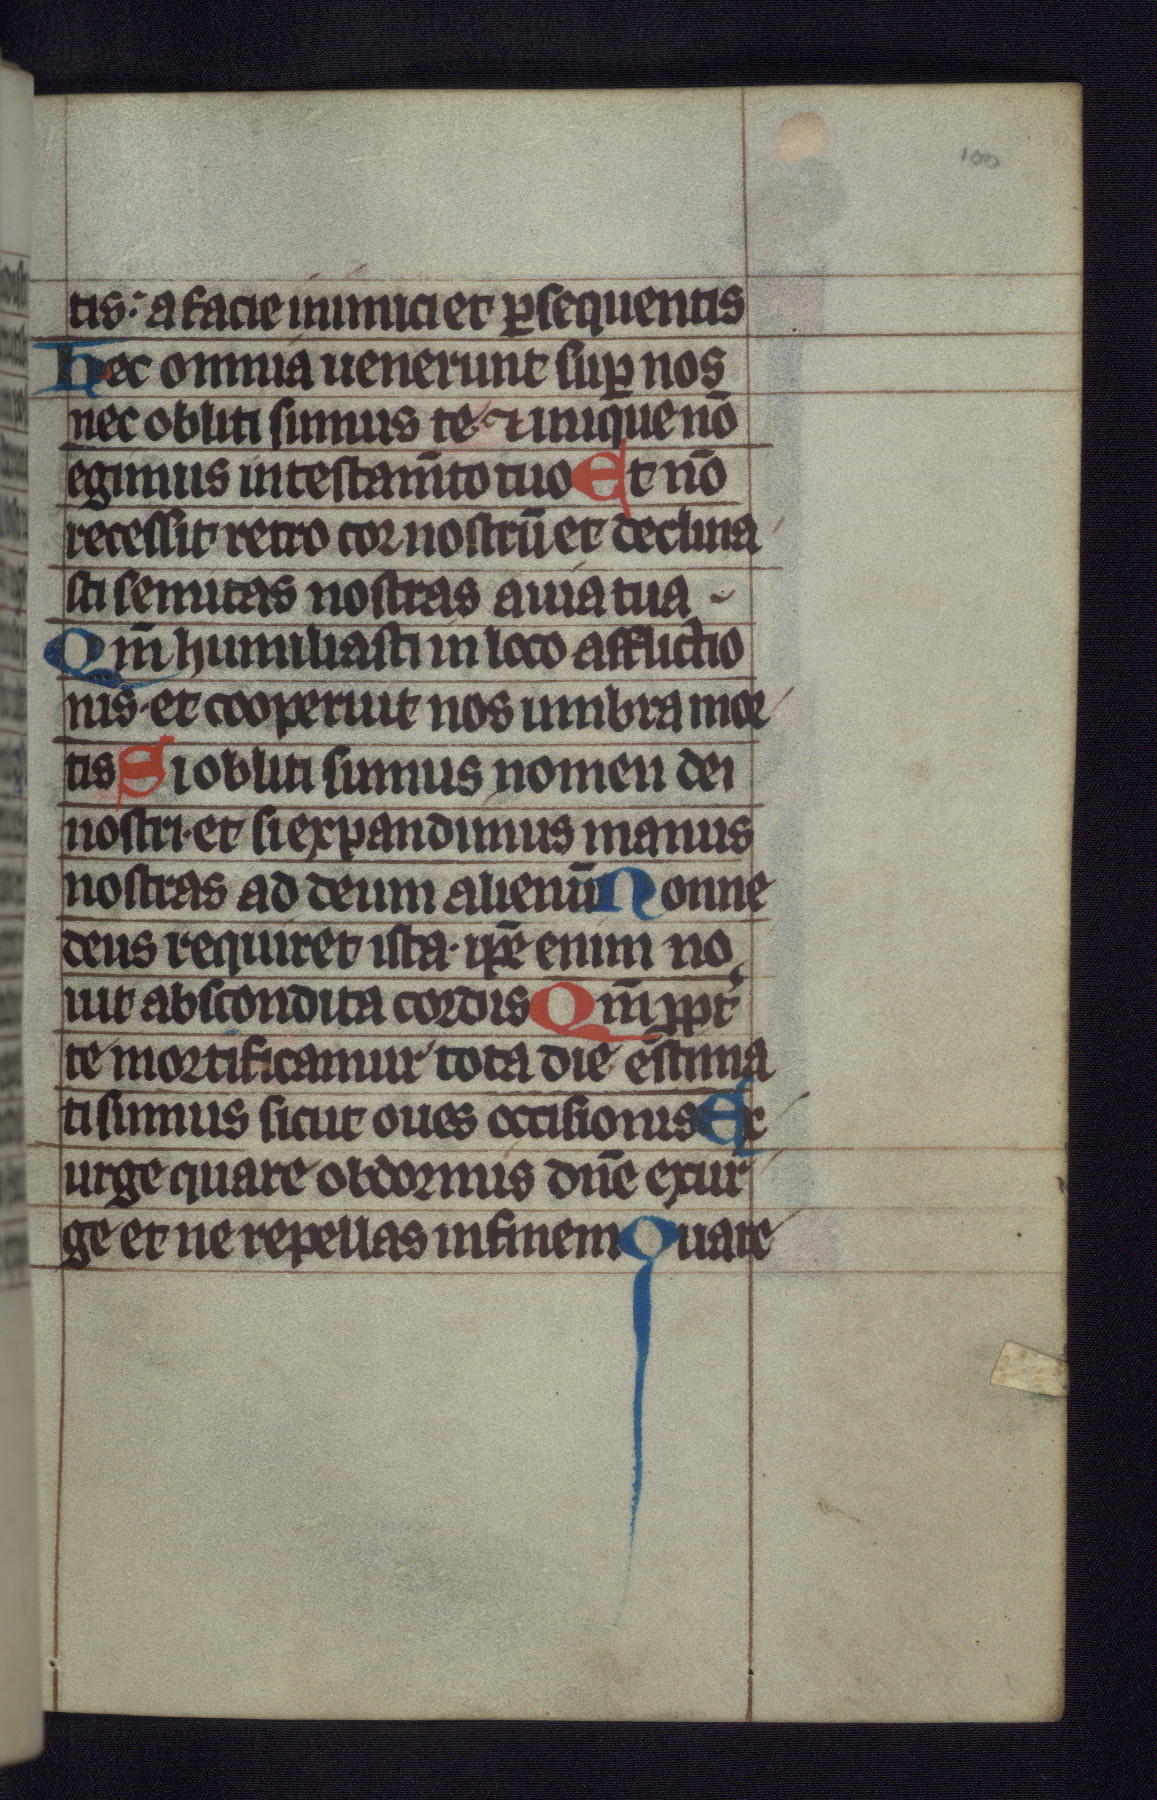 100
tis: a facie inimici et ꝑsequentis
Hec omnia uenerunt suꝑ nos
nec obliti sumus te ⁊ inique nō
egimus in testam̄to tuo Et nō
recessit retro cor nostrū et declina
sti semitas nostras a uia tua
Qm̄ humiliasti in loco afflictio
nis· et cooperuit nos umbra mor
tis Si obliti sumus nomen dei
nostri· et si expandimus manus
nostras ad deum alienū Nonne
deus requiret ista· ip̄e enim no
uit abscondita cordis Qm̄ ꝓpt̉
te mortificamur tota die ēstima
ti sumus sicut oues occisionis Ex
urge quare obdormis dn̄e exur
ge et ne repellas in finem Quare